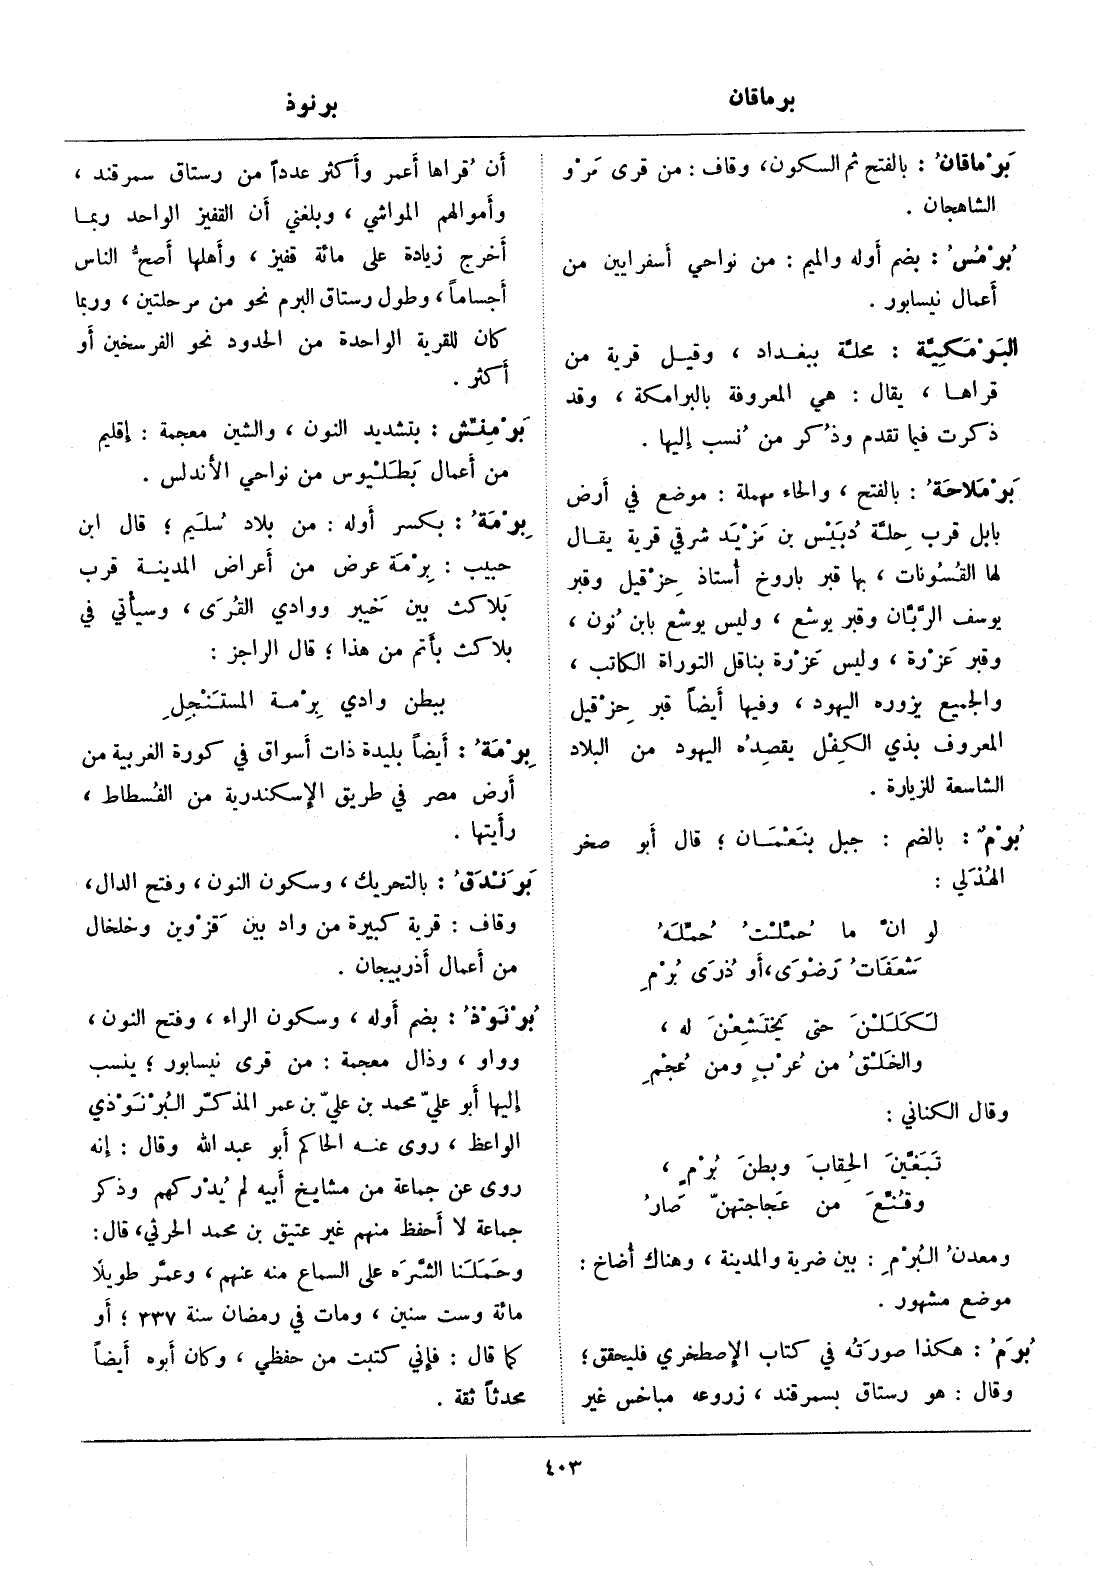 برماقان
برنوذ
بَرْماقانُ : بالفتح ثم السكون، وقاف : من قرى مَرْو
الشاهجان .
بُرْمُسُ : بضم أوله والميم : من نواحي أسفرايين من
أعمال نيسابور .
البَرْمَكِيَّة : محلة ببغداد ، وقيل قرية من
قراها ، يقال : هي المعروفة بالبرامكة ، وقد
ذكرت فيما تقدم وذُكر من نُسب إليها .
بَرْمَلاحَةُ : بالفتح ، والحاء مهملة : موضع في أرض
بابل قرب حِلة دُبَيْس بن مَزْيَد شرقي قرية يقال
لها القُسُونات ، بها قبر باروخ أستاذ حِزْقيل وقبر
يوسف الرَّبَّان وقبر يوشع ، وليس يوشع بابن نُون ،
وقبر عَزْرة ، وليس عَزْرة بناقل التوراة الكاتب ،
والجميع يزوره اليهود ، وفيها أيضاً قبر حِزْقيل
المعروف بذي الكِفْل يقصدُه اليهود من البلاد
الشاسعة للزيارة .
بُرْمٌ : بالضم : جبل بنَعْمَان ؛ قال أبو صخر
الهُذَلي :
لو انّ ما حُمّلْتُ حُمّلَهُ
شَعَفَاتُ رَضْوَى، أو ذُرَى بُرْمِ
لَكَلَلْنَ حتى يَخْتَشِعْنَ له ،
والخَلْقُ من عُرْبٍ ومن عُجْمِ
وقال الكناني :
تَبَغَّيْنَ الحِقابَ وبطنَ بُرْمٍ ،
وقُنّعَ من عَجاجتهنّ صَارُ
ومعدنُ البُرْمِ : بين ضرية والمدينة ، وهناك أُضاخ :
موضع مشهور .
بُرَمُ : هكذا صورَتُه في كتاب الإصطخري فليحقق ؛
وقال : هو رستاق بسمرقند ، زروعه مباخس غير
أن قُراها أعمر وأكثر عدداً من رستاق سمرقند ،
وأموالهم المواشي ، وبلغني أن القفيز الواحد ربما
أخرج زيادة على مائة قفيز ، وأهلها أصحُّ الناس
أجساماً ، وطول رستاق البرم نحو من مرحلتين ، وربما
كان للقرية الواحدة من الحدود نحو الفرسخين أو
أكثر .
بَرْمِنّش : بتشديد النون ، والشين معجمة : إقليم
من أعمال بَطَلْيوس من نواحي الأندلس .
بِرْمَةُ : بكسر أوله : من بلاد سُلَيم ؛ قال ابن
حبيب : بِرْمَة عرض من أعراض المدينة قرب
بَلاكث بين خَيبر ووادي القُرَى ، وسيأتي في
بلاكث بأتم من هذا ؛ قال الراجز :
ببطن وادي بِرْمة المستَنْجِلِ
بِرْمَةُ : أيضاً بليدة ذات أسواق في كورة الغربية من
أرض مصر في طريق الإسكندرية من الفُسطاط ،
رأيتها .
بَرَنْدَقُ : بالتحريك ، وسكون النون ، وفتح الدال،
وقاف : قرية كبيرة من واد بين قَزْوين وخلخال
من أعمال أذربيجان .
بُرْنَوْذُ : بضم أوله ، وسكون الراء ، وفتح النون ،
وواو ، وذال معجمة : من قرى نيسابور ؛ ينسب
إليها أبو عليّ محمد بن عليّ بن عمر المذكّر البُرْنَوْذي
الواعظ ، روى عنه الحاكم أبو عبد الله وقال : إنه
روى عن جماعة من مشايخ أبيه لم يُدْركهم وذكر
جماعة لا أحفظ منهم غير عتيق بن محمد الحرثي، قال:
وحَمَلَنا الشّرَه على السماع منه عنهم ، وعمّر طويلًا
مائة وست سنين ، ومات في رمضان سنة ٣٣٧ ؛ أو
كما قال : فإني كتبت من حفظي ، وكان أبوه أيضاً
محدثاً ثقة .
٤٠٣